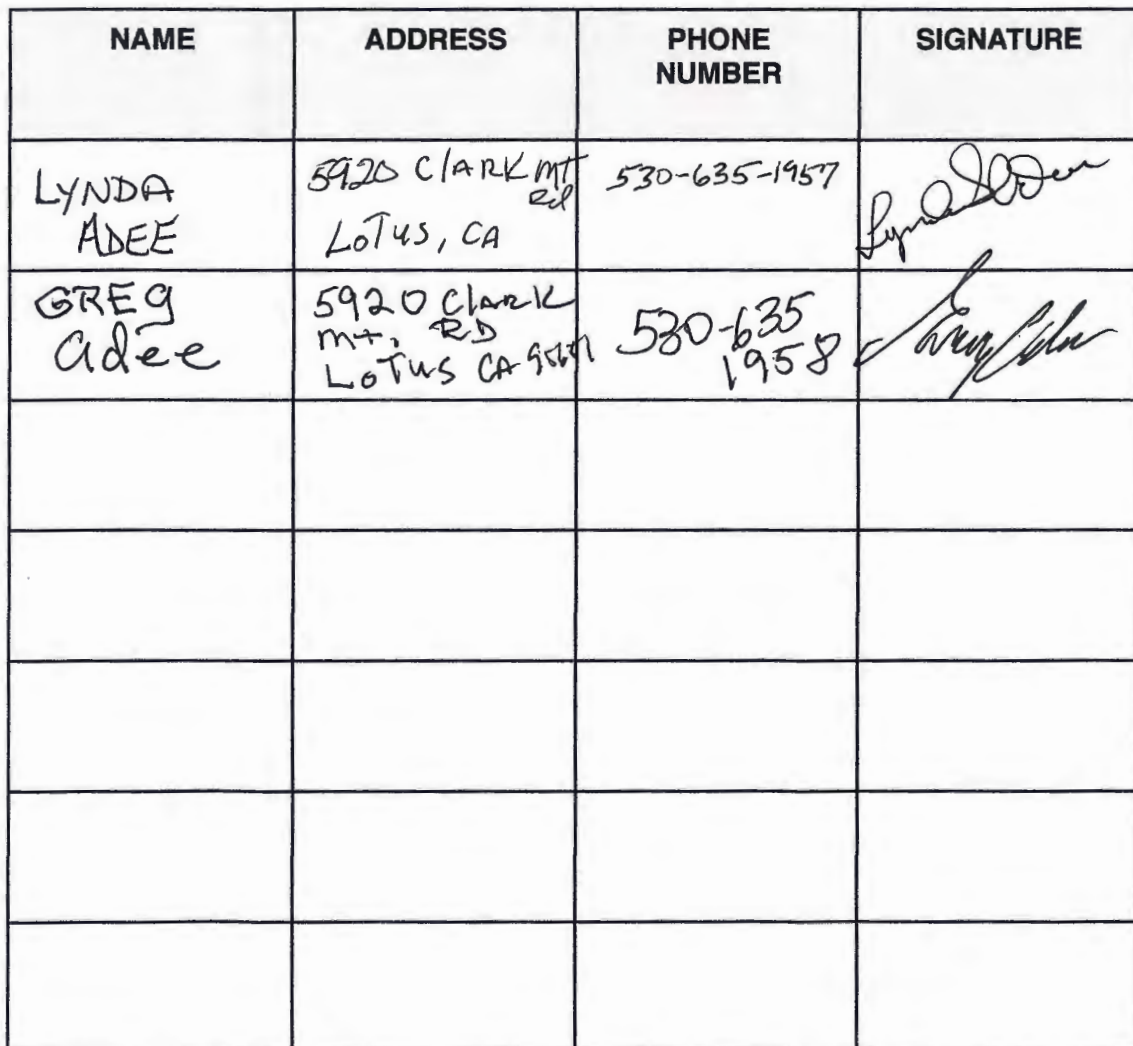 NAME
ADDRESS
PHONE
NUMBER
SIGNATURE
LYNDA
ADEE
5920 ClARK MT
Rd
LoTus, CA
530-635-1957
GREG
adee
5920 Clark
mt. RD
LoTus CA
530-635
1958